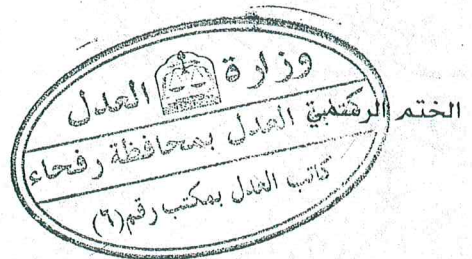 وزارة العدل
الختم الرسمي
العدل بمحافظة رفحاء
كاتب العدل بمكتب رقم (٦)